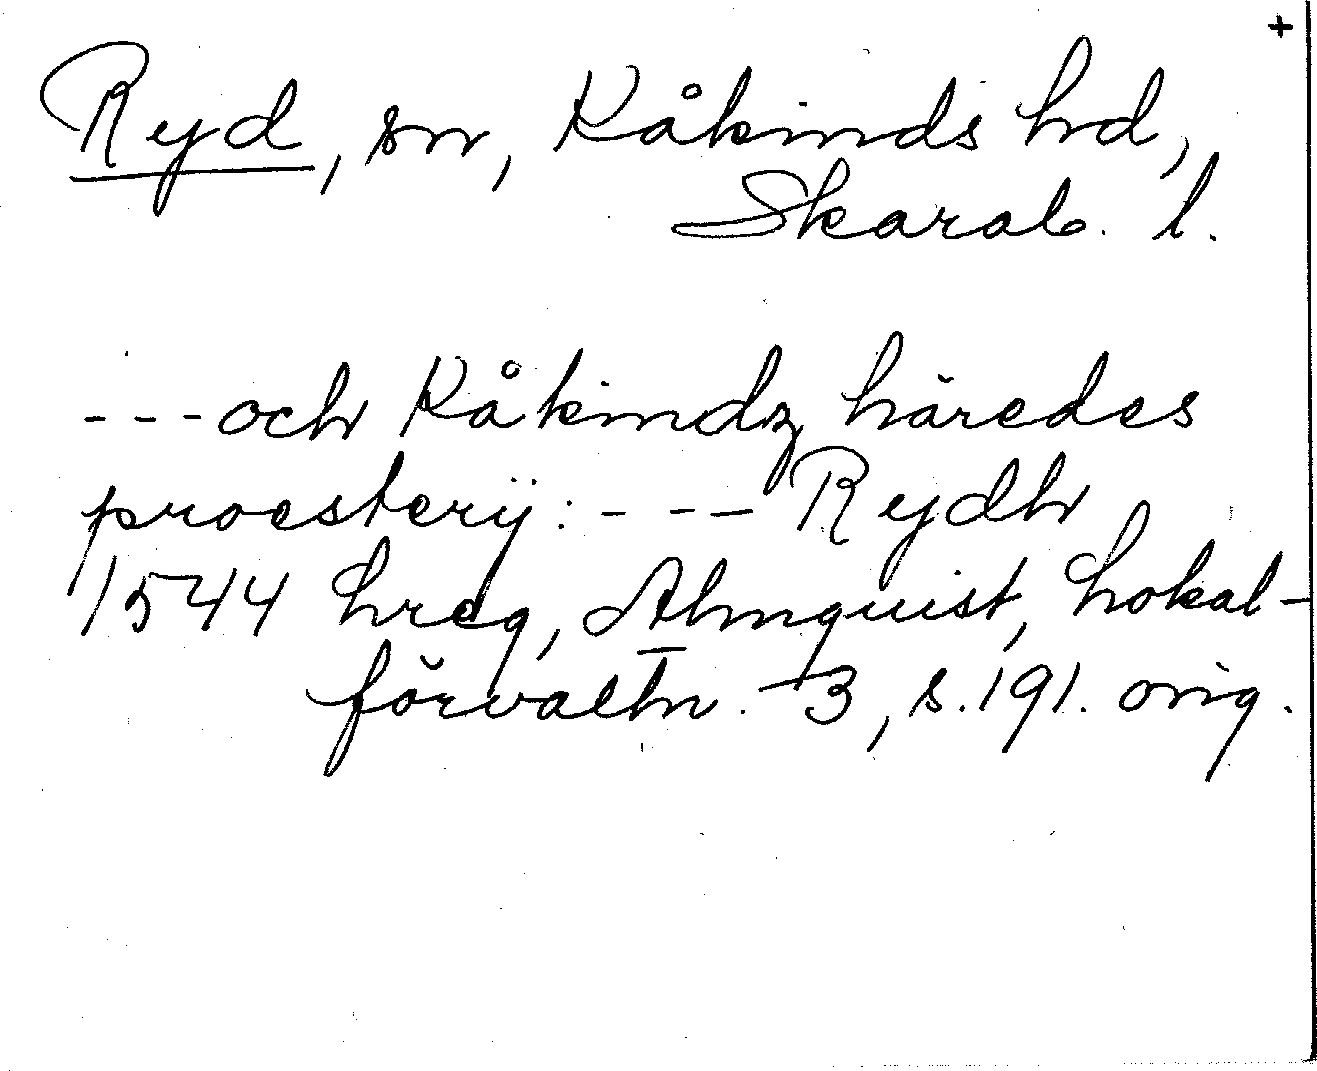 +
Ryd, sn, Kåkinds hd,
Skarab. l.
---och Kåkindz häredes
proesterÿ: --- Rydh
1544 hreg, Almquist, Lokal-
förvaltn. 3, s. 191. orig.